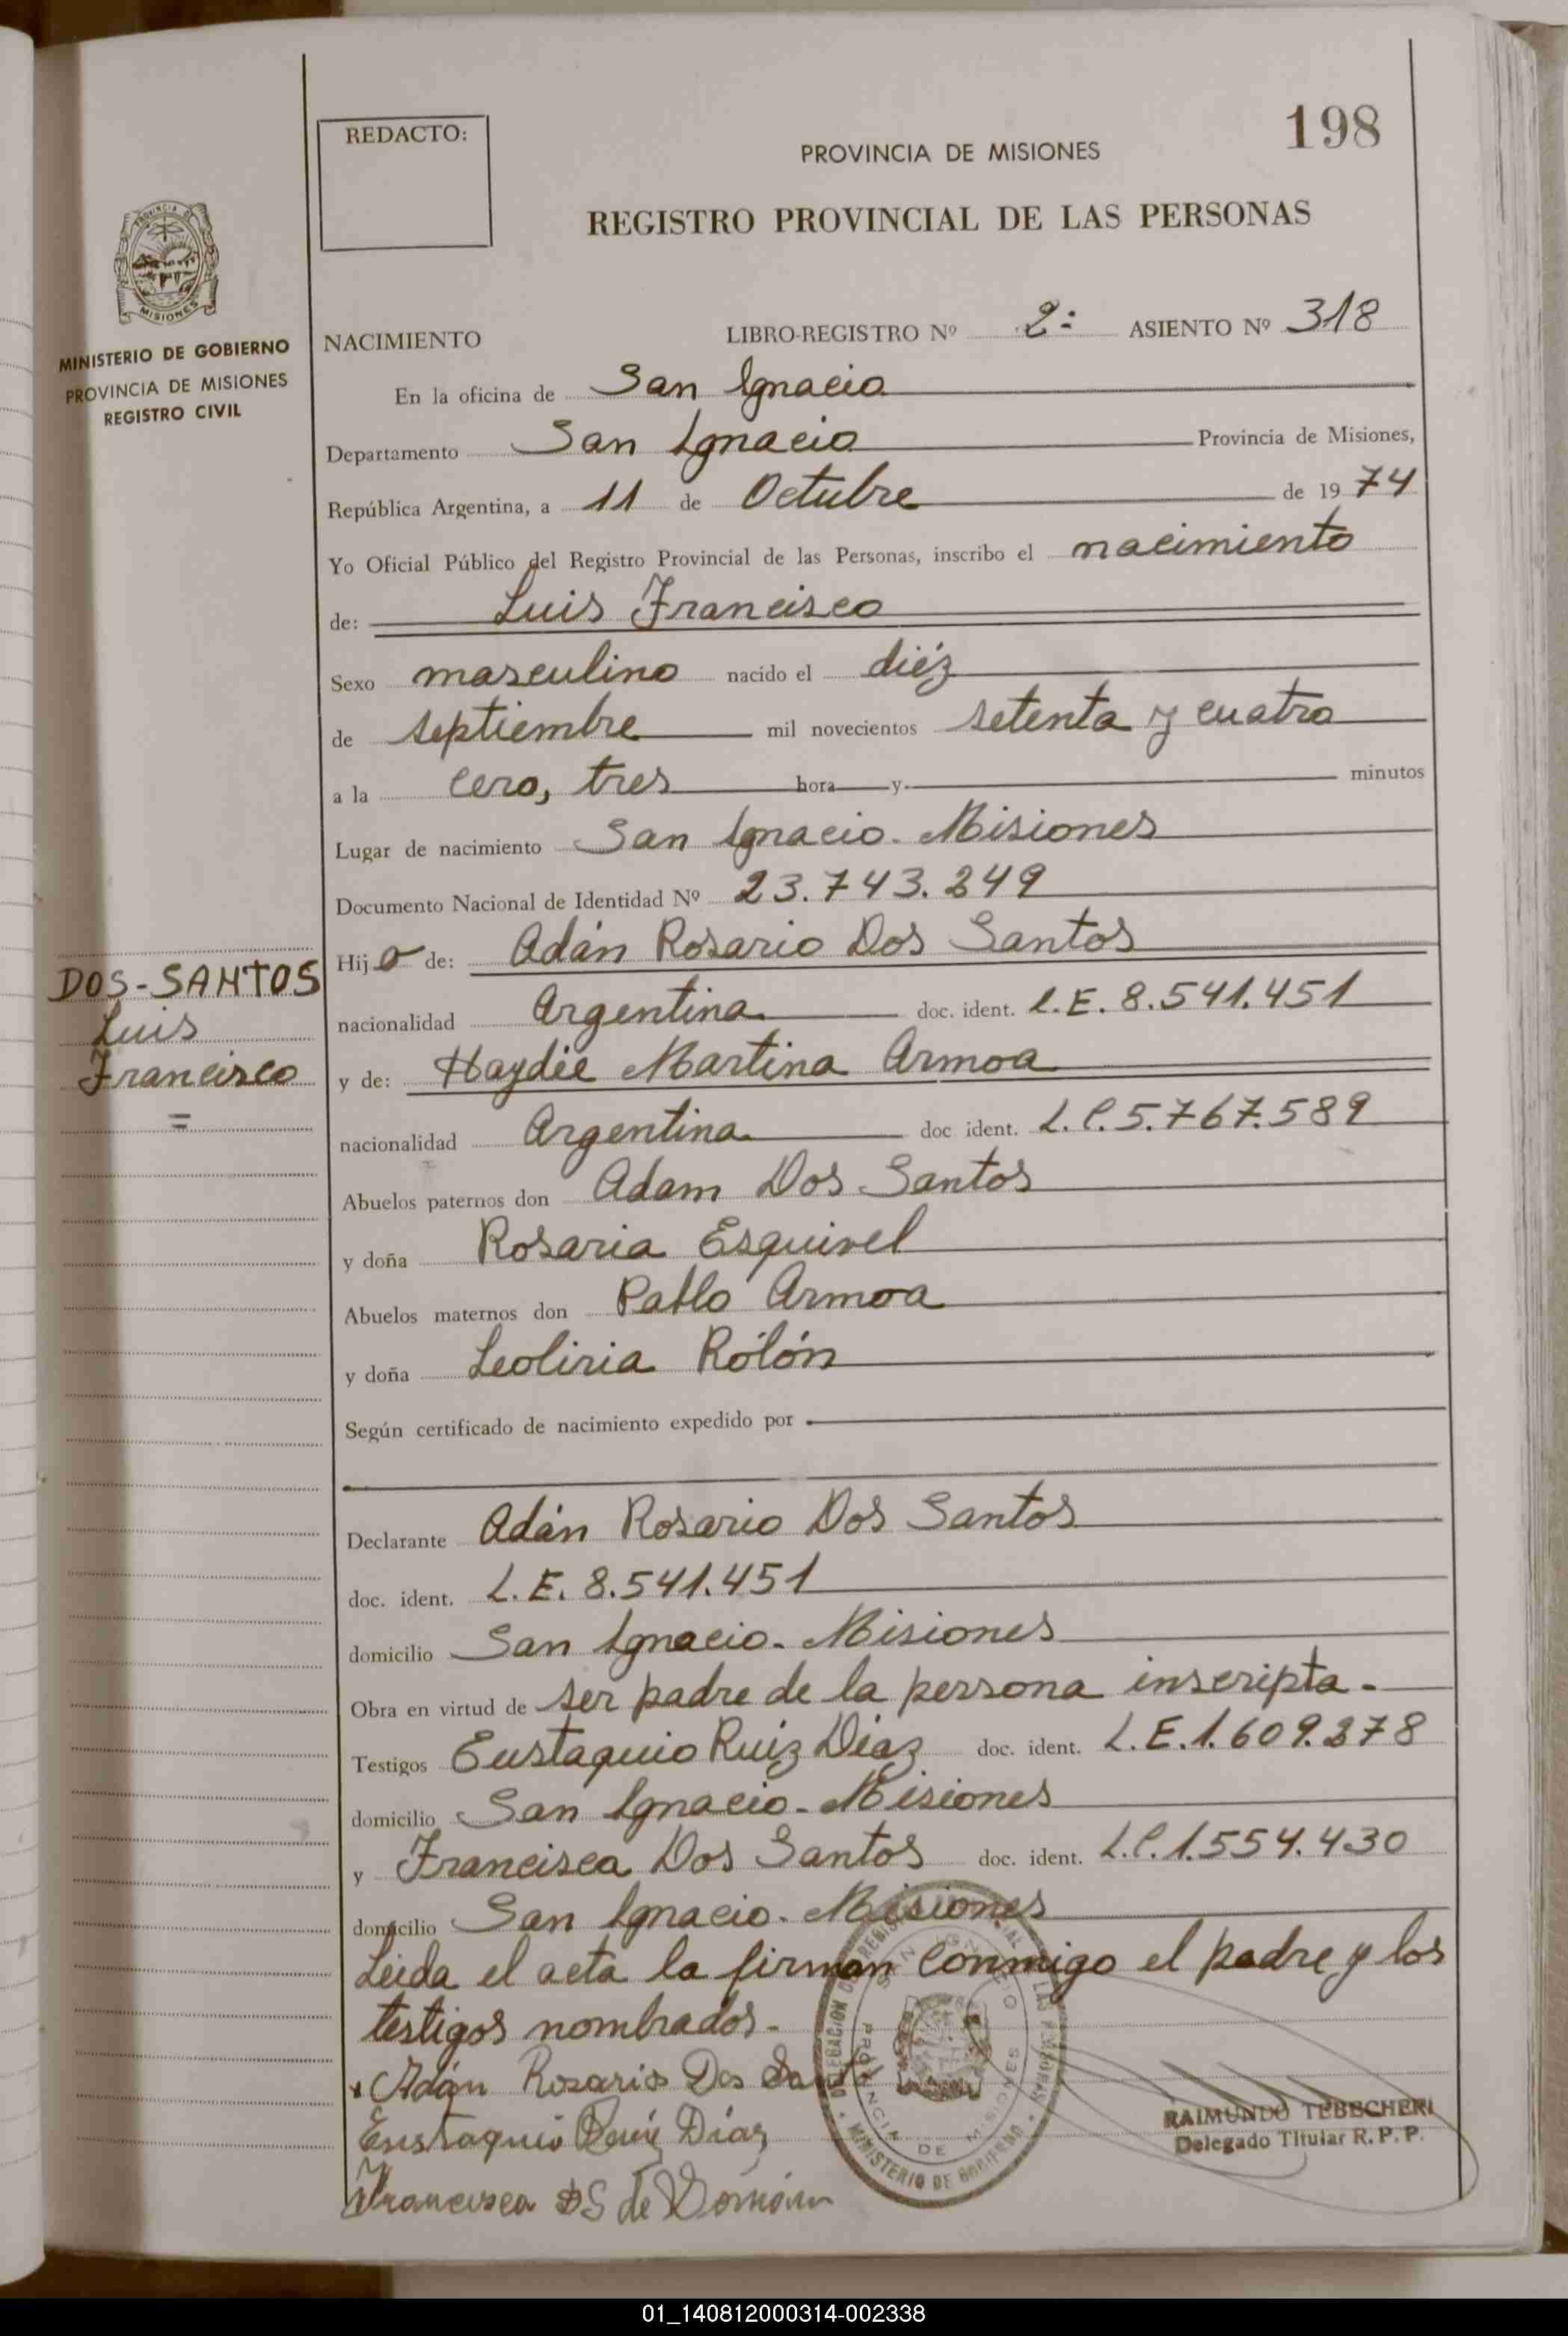 198
REDACTO:
PROVINCIA DE MISIONES
REGISTRO PROVINCIAL DE LAS PERSONAS
PROVINCIA DE
MISIONES
MINISTERIO DE GOBIERNO
PROVINCIA DE MISIONES
REGISTRO CIVIL
NACIMIENTO LIBRO-REGISTRO Nº 2: ASIENTO Nº 318
En la oficina de San Ignacio
Departamento San Ignacio Provincia de Misiones,
República Argentina, a 11 de Octubre de 1974
Yo Oficial Público del Registro Provincial de las Personas, inscribo el nacimiento
de: Luis Francisco
Sexo masculino nacido el diéz
de septiembre mil novecientos setenta y cuatro
a la cero, tres hora y minutos
Lugar de nacimiento San Ignacio. Misiones
Documento Nacional de Identidad Nº 23.743.249
Hijo de: Adán Rosario Dos Santos
DOS-SANTOS
Luis
Francisco
=
nacionalidad Argentina doc. ident. L.E. 8.541.451
y de: Haydée Martina Armoa
nacionalidad Argentina doc ident. L.C.5.767.589
Abuelos paternos don Adam Dos Santos
y doña Rosaria Esquivel
Abuelos maternos don Pablo Armoa
y doña Leoliria Rólón
Según certificado de nacimiento expedido por
Declarante Adán Rosario Dos Santos
doc. ident. L.E. 8.541.451
domicilio San Ignacio. Misiones
Obra en virtud de ser padre de la persona inscripta.
Testigos Eustaquio Ruiz Diaz doc. ident. L.E.1.609.278
domicilio San Ignacio. Misiones
y Francisca Dos Santos doc. ident. L.C.1.554.430
domicilio San Ignacio. Misiones
Leida el acta la firman conmigo el padre y los
testigos nombrados.
Adán Rosario Dos Santos
Eustaquio Ruíz Díaz
Francisca DS de
SAN IGNACIO
PROVINCIA DE MISIONES
MINISTERIO DE GOBIERNO
RAIMUNDO TEBECHERI
Delegado Titular R. P. P.
01_140812000314-002338